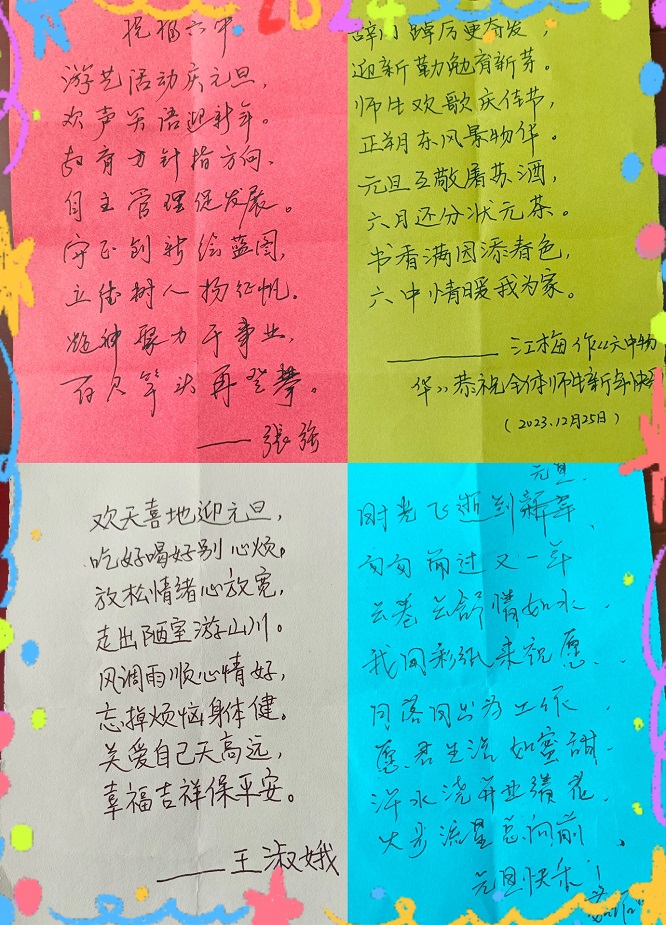 2024
祝福六中
游艺活动庆元旦,
欢声笑语迎新年。
教育方针指方向,
自主管理促发展。
守正创新绘蓝图,
立德树人扬征帆.
凝神聚力干事业,
百尺竿头再登攀。
——張强
辞旧踔厉更奋发,
迎新勤勉有新芽。
师生欢歌庆佳节,
正朔东风景物华。
元旦互敬屠苏酒,
六月还分状元茶。
书香满园添春色,
六中情暖我为家。
——江梅作《六中物
华》恭祝全体师生新年快乐
(2023.12月25日)
欢天喜地迎元旦,
吃好喝好别心烦。
放松情绪心放宽,
走出陋室游山川。
风调雨顺心情好,
忘掉烦恼身体健。
关爱自己天高远,
幸福吉祥保平安。
——王淑娥
元旦
时光飞逝到新年,
匆匆而过又一年
云卷云舒情如水.
我用彩纸来祝愿..
日落日出为工作.
愿君生活如蜜甜.
汗水浇开业绩花.
大步流星总向前.
元旦快乐!